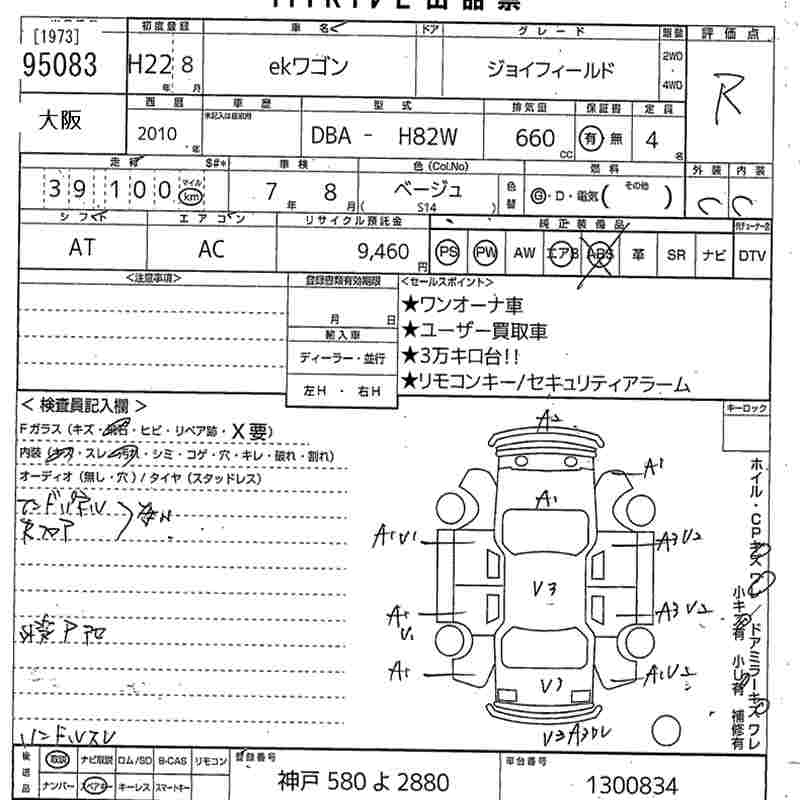 [1973]
95083
大阪
初度登録
H22 8
年 月
車名
ekワゴン
ドア
グレード
ジョイフィールド
2WD
・
4WD
評価点
R
西暦
2010 年
車歴
未記入は自家用
型式
DBA - H82W
排気量
660 CC
保証書
有・無
定員
4 名
走行
39,100
マイル
km
S#*
車検
7 年 8 月
色 (Col.No)
ベージュ
( S14 )
色替
燃料
G・D・電気( その他 )
外装 内装
C C
シフト
AT
エアコン
AC
リサイクル預託金
9,460 円
純正装備品
PS PW AW エアB ABS 革 SR ナビ DTV
<注意事項>
登録書類有効期限
月 日
輸入車
ディーラー・並行
左H ・ 右H
<セールスポイント>
★ワンオーナ車
★ユーザー買取車
★3万キロ台!!
★リモコンキー/セキュリティアラーム
キーロック
< 検査員記入欄 >
Fガラス (キズ・飛石・ヒビ・リペア跡・X要)
内装 (キズ・スレ・汚れ・シミ・コゲ・穴・キレ・破れ・割れ)
オーディオ (無し・穴) / タイヤ (スタッドレス)
外装アロ
ハンドルスレ
A2
A1
A1
A1 V1
A3 V2
V3
A1
V1
A3 V2
A1
A1 V2
ホイル・CPキズワレ/ドアミラーキズワレ
小キズ有 小し有 補修有
後送品
取説 ナビ取説 ロム/SD B-CAS リモコン
ナンバー スペアキー キーレス スマートキー
登録番号
神戸 580 よ 2880
車台番号
1300834